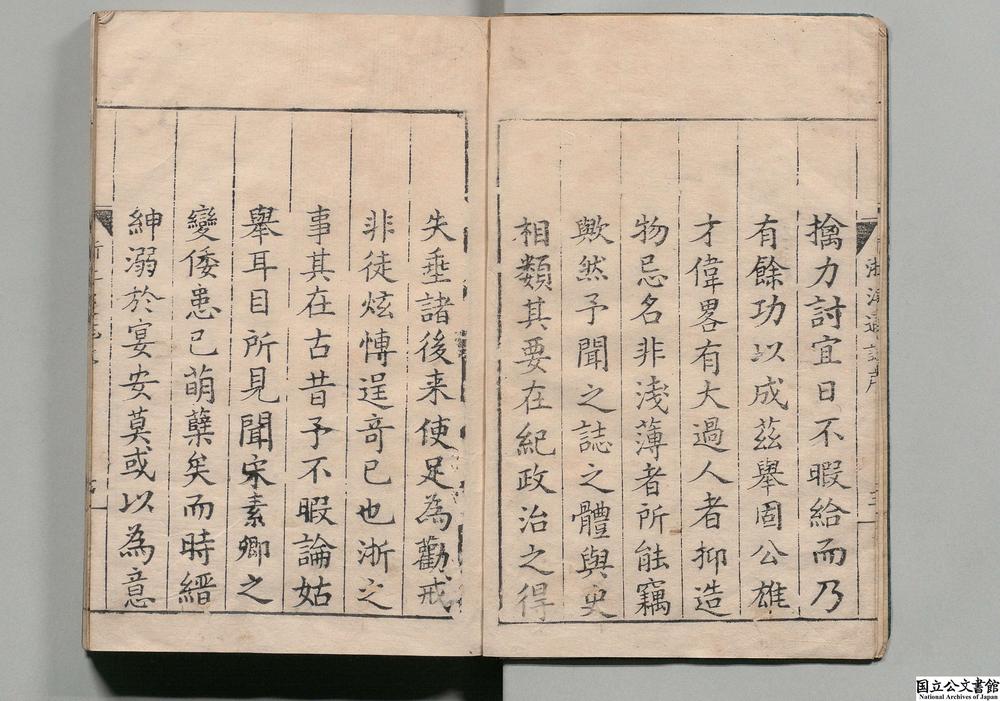 擒力討宜日不暇給而乃
有餘功以成茲舉固公雄
才偉畧有大過人者抑造
物忌名非淺薄者所能竊
歟然予聞之誌之體與史
相類其要在紀政治之得
失垂諸後来使足為勸戒
非徒炫慱逞奇已也浙之
事其在古昔予不暇論姑
舉耳目所見聞宋素卿之
變倭患已萌蘖矣而時縉
紳溺於宴安莫或以為意
国立公文書館
National Archives of Japan